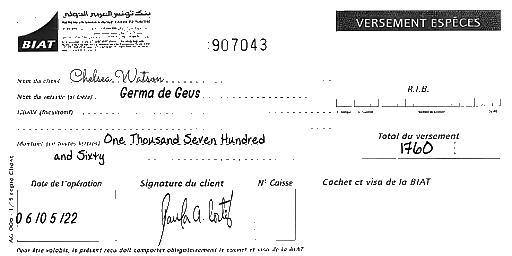 بنك تونس العربي الدولي
BIAT
VERSEMENT ESPÈCES
907043
Nom du client Chelsea Watson
Nom du remettant (si tiers) Germa de Geus
R.I.B.
Libellé (facultatif)
Montant (en toutes lettres) One Thousand Seven Hundred
and Sixty
Total du versement
1760
Date de l'opération
Signature du client
N° Caisse
Cachet et visa de la BIAT
06/05/22
Paula A. Cortez
Pour être valable, le présent reçu doit comporter obligatoirement le cachet et visa de la BIAT